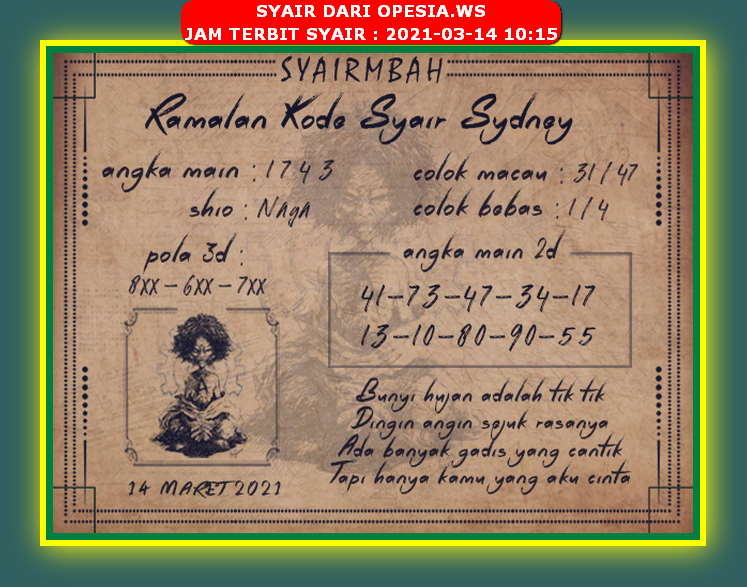 SYAIR DARI OPESIA.WS
JAM TERBIT SYAIR : 2021-03-14 10:15
SYAIRMBAH
Ramalan Kode Syair Sydney
angka main : 1 7 4 3
colok macau : 31 / 47
shio : NAgA
colok bebas : 1 / 4
pola 3d :
8XX – 6XX – 7XX
angka main 2d
41–73–47–34–17
13–10–80–90–55
Bunyi hujan adalah tik tik
Dingin angin sejuk rasanya
Ada banyak gadis yang cantik
Tapi hanya kamu yang aku cinta
14 MARET 2021